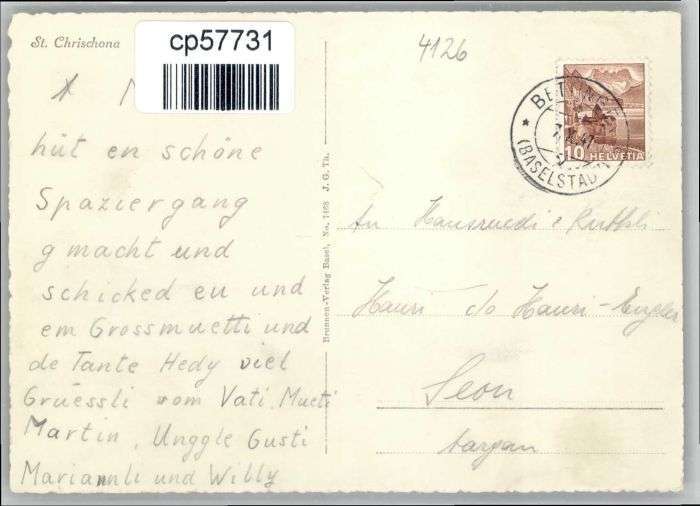 St. Chrischona
cp57731
hüt en schöne
Spaziergang
gmacht und
schicked eu und
em Grossmuetti und
de Tante Hedy viel
Grüessli vom Vati, Mueti
Martin, Unggle Gusti
Mariannli und Willy
Brunnen-Verlag Basel, No. 7468 J. G. Th.
4126
BETTINGEN
(BASELSTADT)
10 HELVETIA
An Hansruedi & Ruthli
Hauri c/o Hauri-Engler
Seon
Aargau